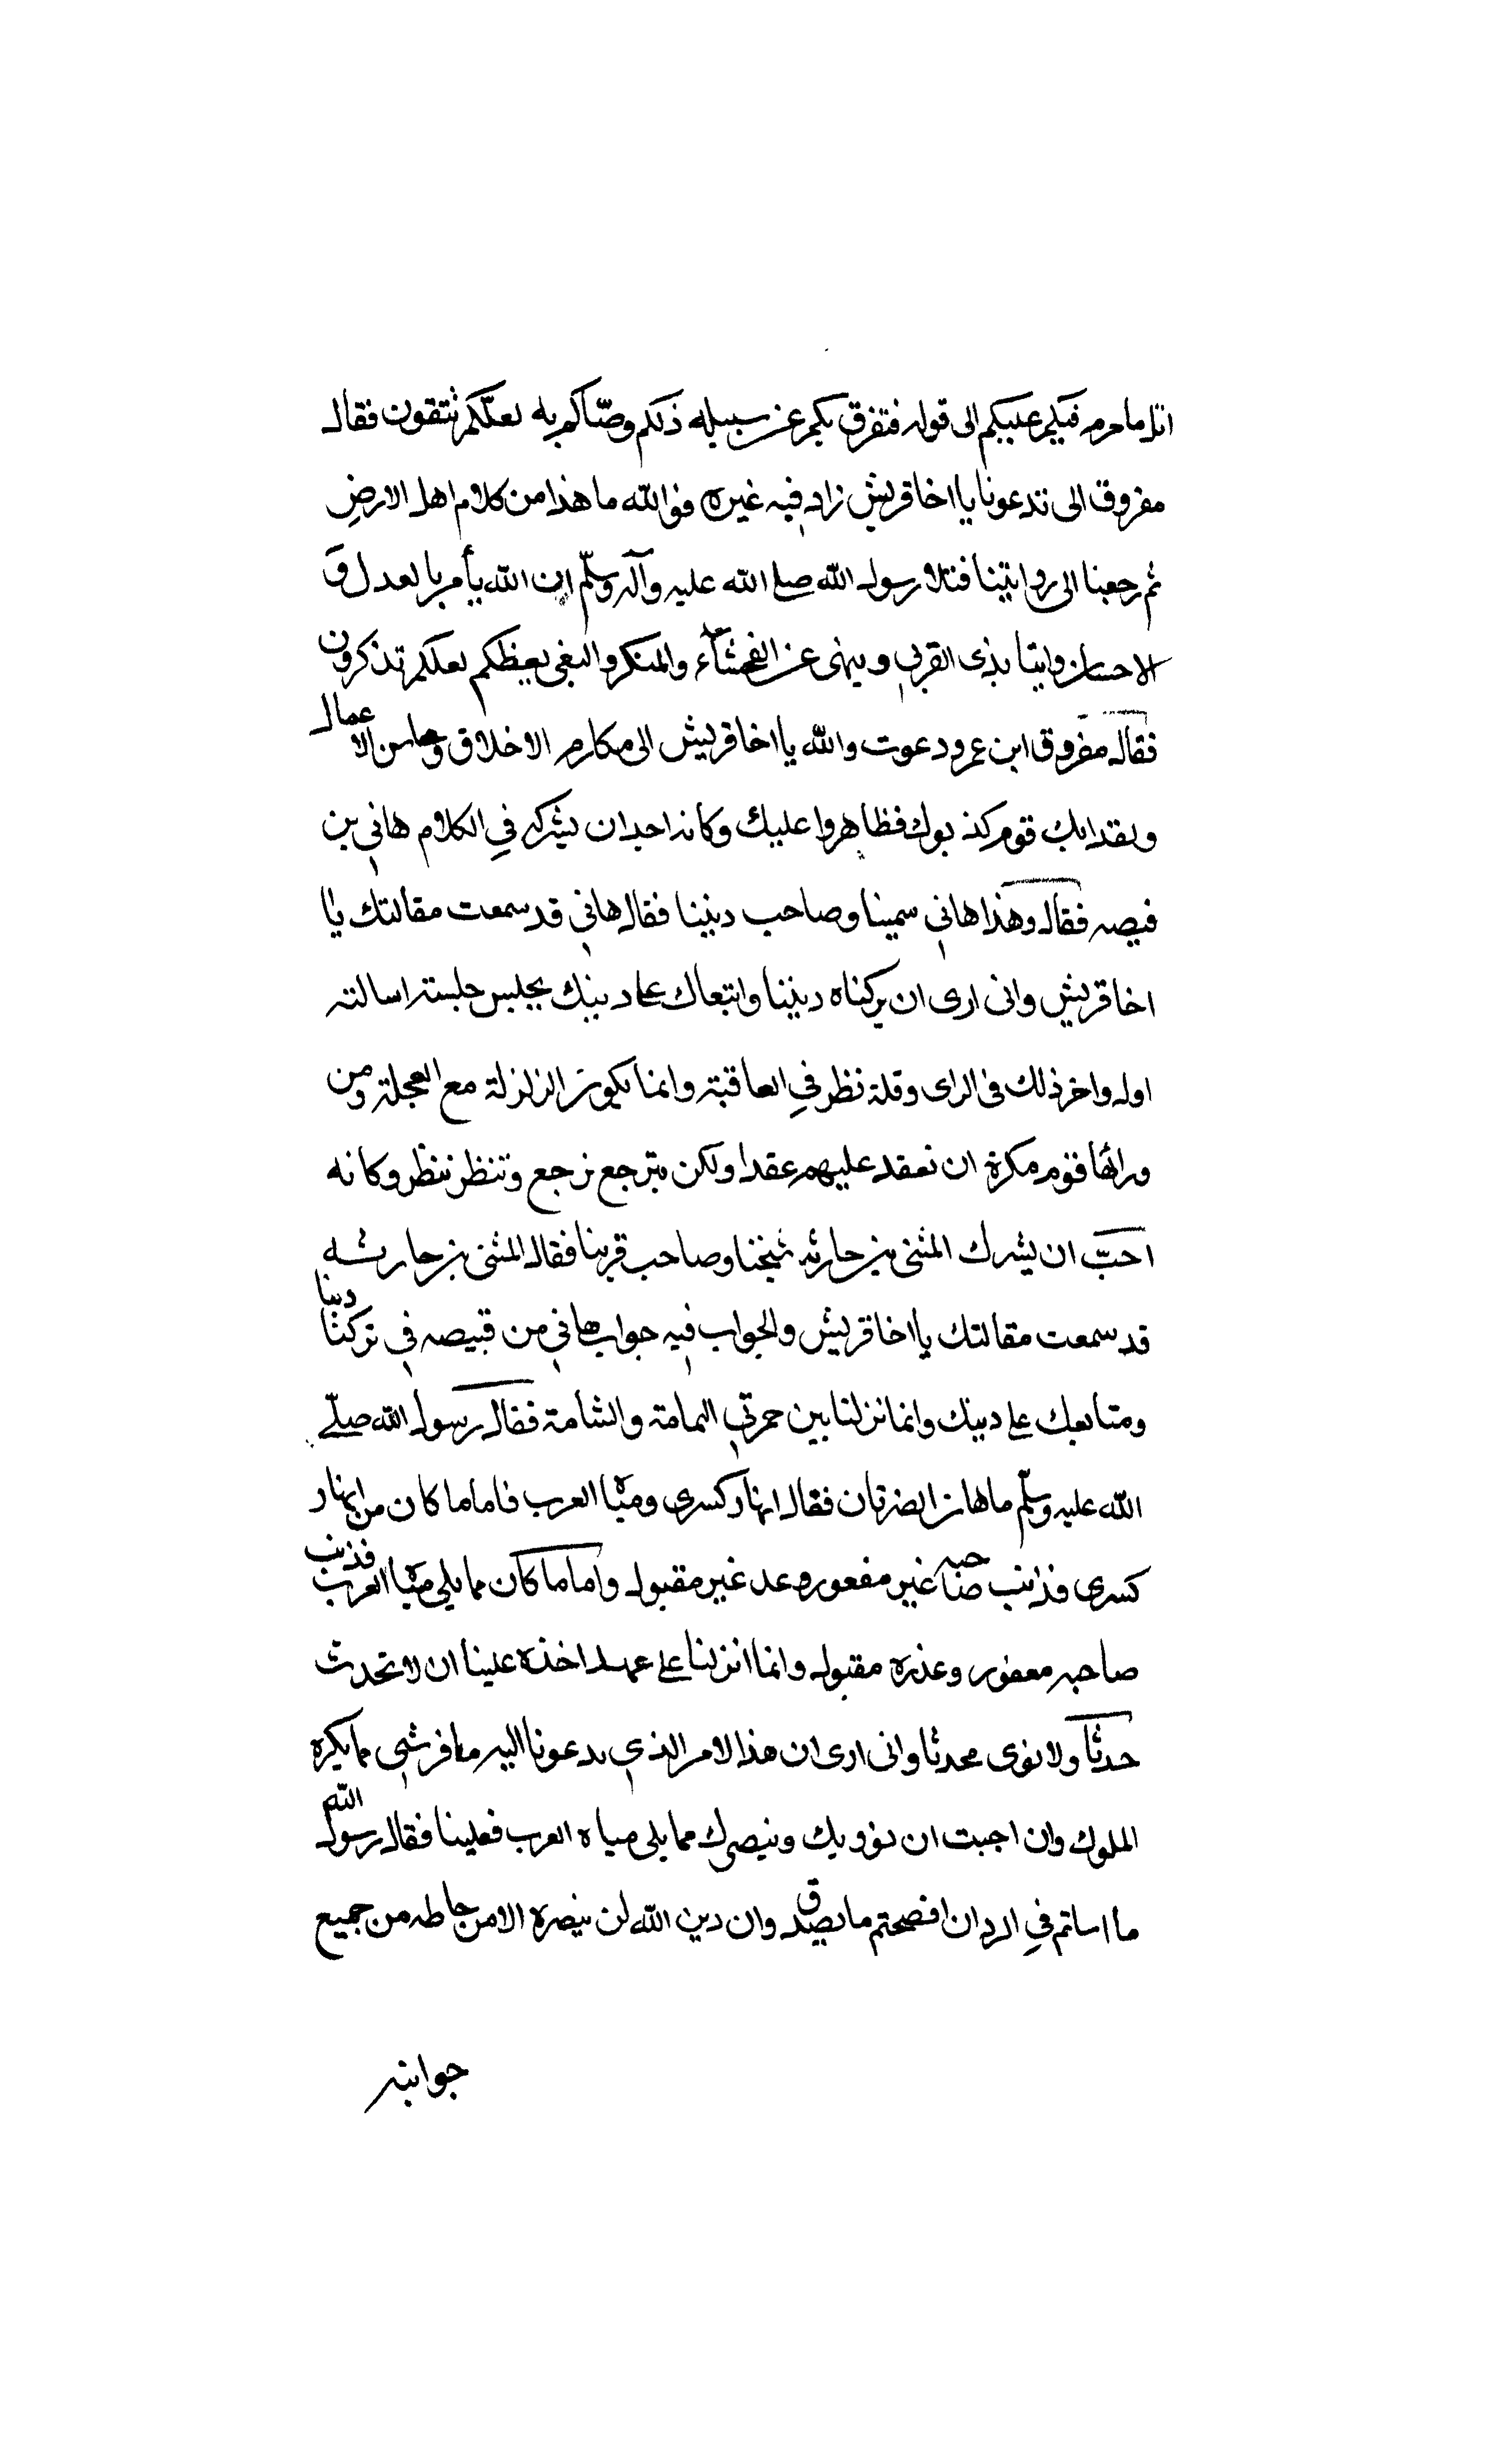 اتل ما حرم فيكم عليكم الى قوله فتفرق بكم عن سبيله ذلكم وصّاكم به لعلّكم تتقون فقال
مفروق الى تدعونا يا اخا قريش زاد فيه غيره فوالله ما هذا من كلام اهل الارض
ثم رجعنا الى روايتنا فتلا رسول الله صلى الله عليه وآله وسلّم ان الله يأمر بالعدل و
الاحسان وايتا بذى القربى وينهى عن الفحشآء والمنكر والبغى يعظكم لعلكم تذكرون
فقال مفروق ابن عمرو دعوت والله يا اخا قريش الى مكارم الاخلاق ومحاسن الاعمال
ولقد افك قوم كذبوك فظاهروا عليك وكانه احب ان يشركه في الكلام هاني بن
قبيصه فقال وهذا هاني سمينا وصاحب ديننا فقال هاني قد سمعت مقالتك يا
اخا قريش وانى ارى ان تركناه ديننا واتبعاك على دينك بجلس جلسته اسالته
اوله واخر ذلك فى الراى وقلة نظر في العاقبة وانما يكون الزلزلة مع العجلة ومن
ورائها قوم مكرة ان نعقد عليهم عقدا ولكن ترجع نرجع وتنظر ننظر وكانه
احبّ ان يشرك المثنى بن حارثه شيخنا وصاحب قربنا فقال المثنى بن حارثه
قد سمعت مقالتك يا اخا قريش والجواب فيه جواب هاني من قبيصه في تركنا دينا
ومتابعك على دينك وانما نزلنا بين حمرتي اليمامة والشامة فقال رسول الله صلّى
الله عليه وسلّم ما هاتان الضرتان فقال انهار كسرى ومياه العرب فاما ما كان من انهار
كسرى فذنب صاحبه غير مفعور وعد غير مقبول واما ما كان مما يلى مياه العرب فذنب
صاحبه معفور وعذره مقبول وانما انزلنا على عهد اخذه علينا ان لا تحدث
حدثا ولا نوى محدثا وانى ارى ان هذا الامر الذي يدعونا اليه مما فرشي مما يكره
الملوك وان اجبت ان نوويك وننصرك مما يلى مياه العرب فعلينا فقال رسول الله
ما اساتم في الرد ان افصحتم ما يصدق وان دين الله لن ينصره الا من حاطه من جميع
جوانبه